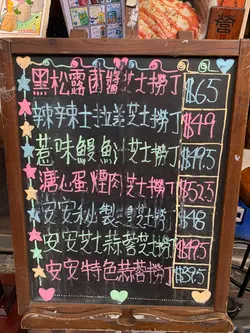 黑松露菌醬芝士撈丁 $65
辣辣士拉差芝士撈丁 $49
惹味鰻魚汁芝士撈丁 $49.5
溏心蛋煙肉芝士撈丁 $52.5
安安秘製芝士撈丁 $48
安安芝士蒜蓉芝撈丁 $49.5
安安特色蒜蓉撈丁 $39.5
營